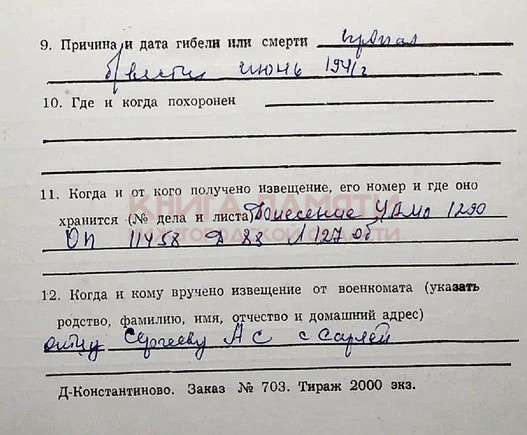 9. Причина и дата гибели или смерти пропал
б/вести июнь 1941г
10. Где и когда похоронен
11. Когда и от кого получено извещение, его номер и где оно
КНИГА ПАМЯТИ
хранится (№ дела и листа) Донесение ЦАМО 1290
НИЖЕГОРОДСКОЙ ОБЛАСТИ
ОП 11458 Д 83 Л 127 об
12. Когда и кому вручено извещение от военкомата (указать
родство, фамилию, имя, отчество и домашний адрес)
отцу Сергееву А С с Сарлей
Д-Константиново. Заказ № 703. Тираж 2000 экз.